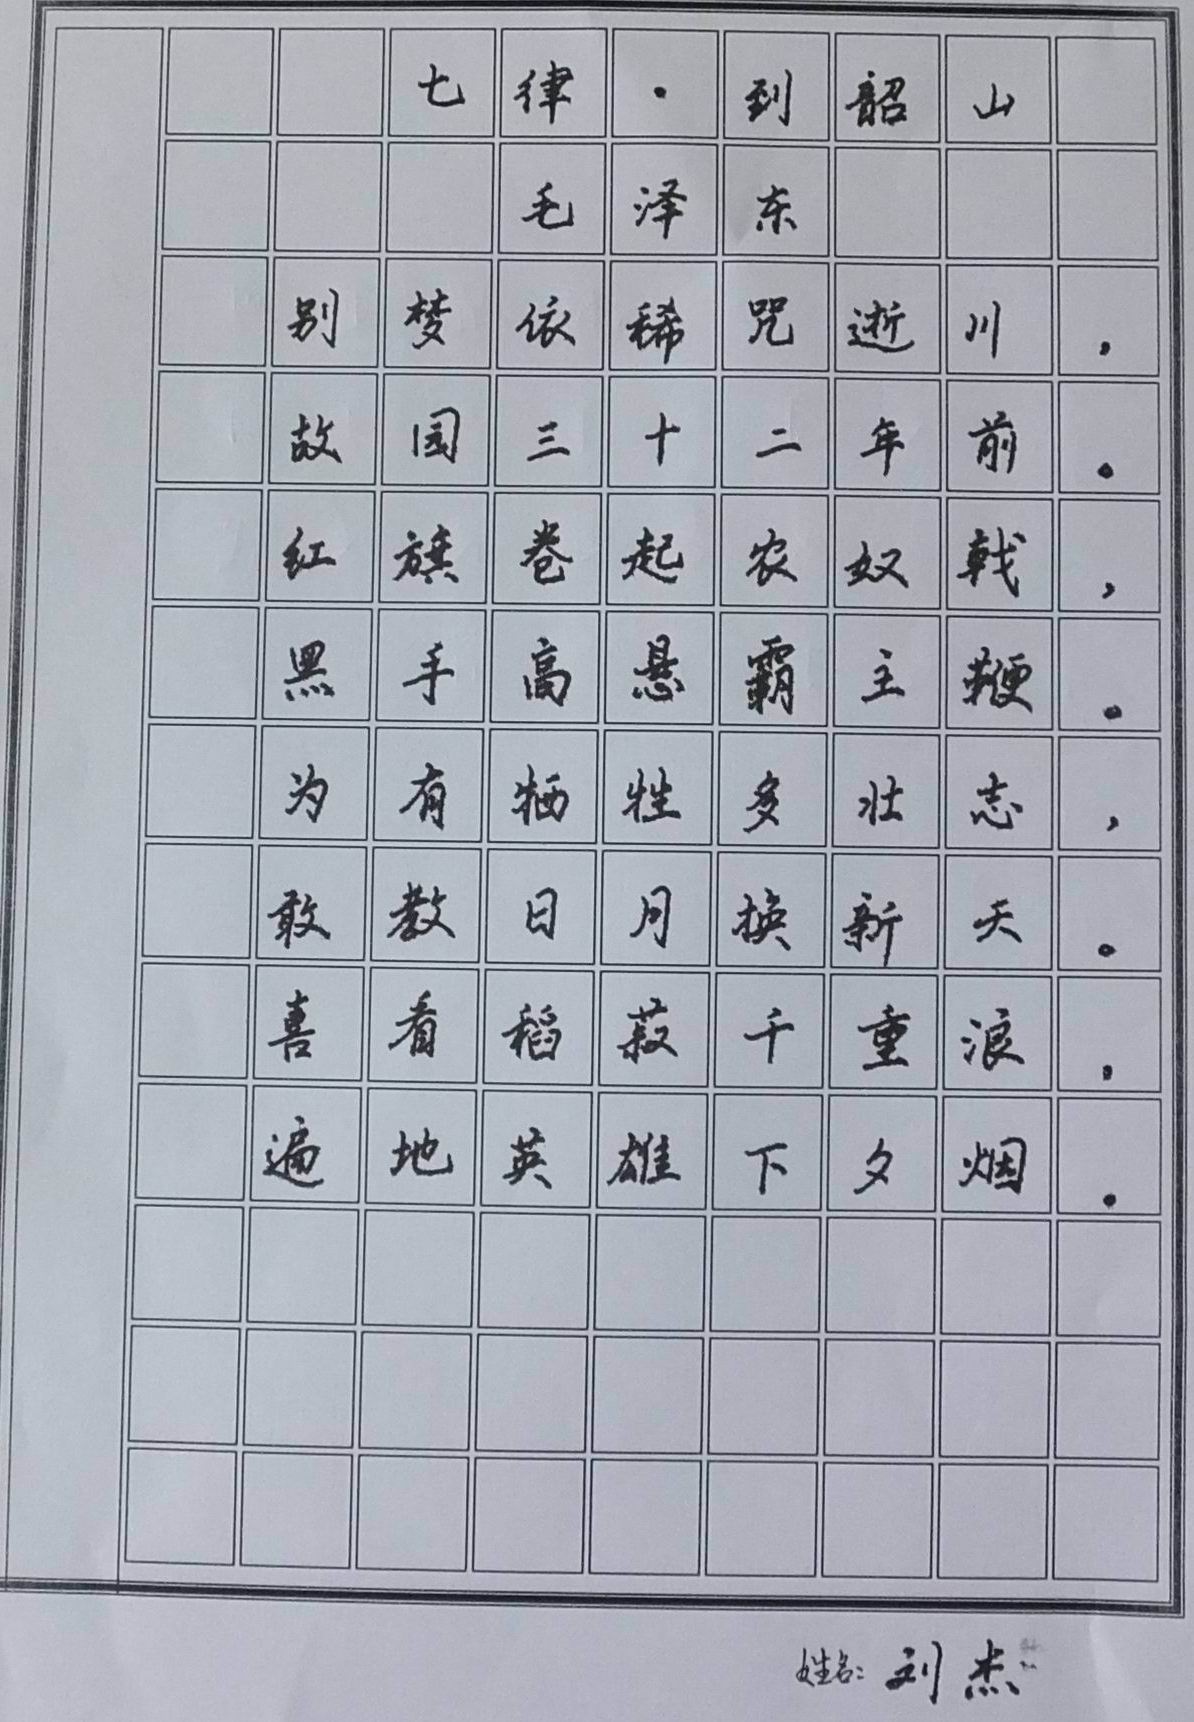 七律·到韶山
毛泽东
别梦依稀咒逝川，
故园三十二年前。
红旗卷起农奴戟，
黑手高悬霸主鞭。
为有牺牲多壮志，
敢教日月换新天。
喜看稻菽千重浪，
遍地英雄下夕烟。
姓名：刘杰